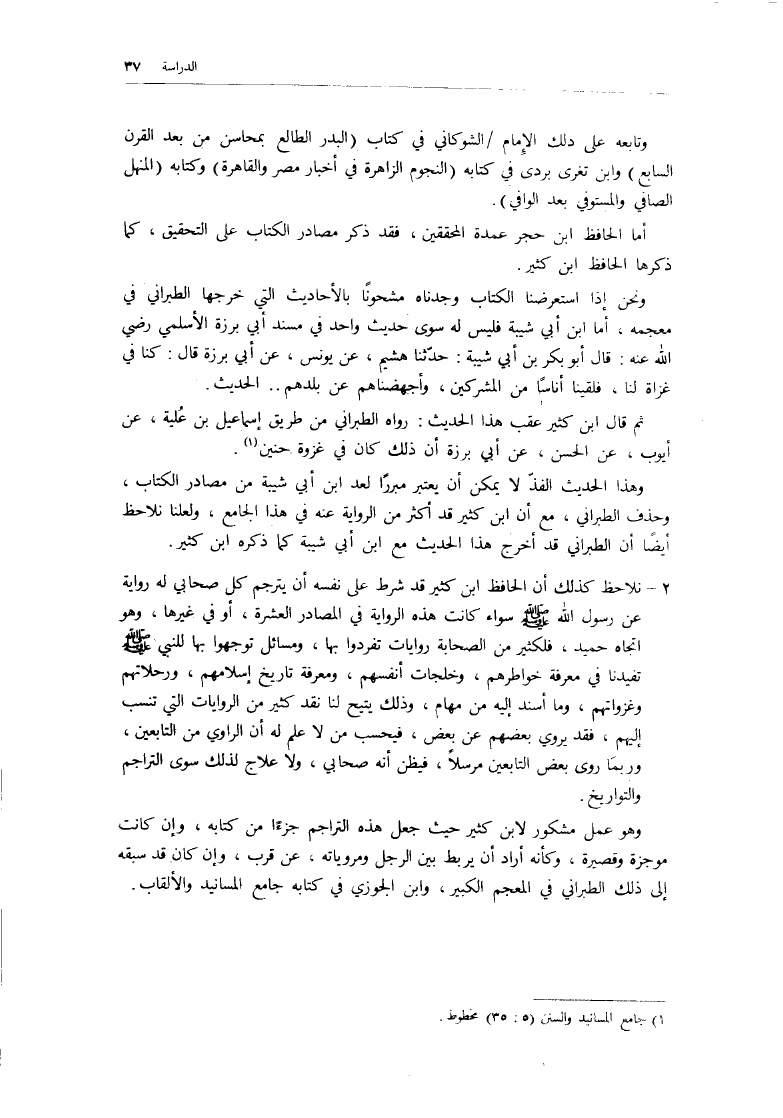 الدراسة ٣٧
وتابعه على ذلك الإمام / الشوكاني في كتاب (البدر الطالع بمحاسن من بعد القرن
السابع ) وابن تغرى بردى في كتابه (النجوم الزاهرة في أخبار مصر والقاهرة) وكتابه (المنهل
الصافي والمستوفي بعد الوافي) .
أما الحافظ ابن حجر عمدة المحققين ، فقد ذكر مصادر الكتاب على التحقيق ، كما
ذكرها الحافظ ابن كثير .
ونحن إذا استعرضنا الكتاب وجدناه مشحونًا بالأحاديث التي خرجها الطبراني في
معجمه ، أما ابن أبي شيبة فليس له سوى حديث واحد في مسند أبي برزة الأسلمي رضي
الله عنه : قال أبو بكر بن أبي شيبة : حدّثنا هشيم ، عن يونس ، عن أبي برزة قال : كنا في
غزاة لنا ، فلقينا أناسًا من المشركين ، وأجهضناهم عن بلدهم .. الحديث .
ثم قال ابن كثير عقب هذا الحديث : رواه الطبراني من طريق إسماعيل بن عُلية ، عن
أيوب ، عن الحسن ، عن أبي برزة أن ذلك كان في غزوة حنين(١) .
وهذا الحديث الفذّ لا يمكن أن يعتبر مبررًا لعد ابن أبي شيبة من مصادر الكتاب ،
وحذف الطبراني ، مع أن ابن كثير قد أكثر من الرواية عنه في هذا الجامع ، ولعلنا نلاحظ
أيضًا أن الطبراني قد أخرج هذا الحديث مع ابن أبي شيبة كما ذكره ابن كثير .
٢ – نلاحظ كذلك أن الحافظ ابن كثير قد شرط على نفسه أن يترجم كل صحابي له رواية
عن رسول الله ﷺ سواء كانت هذه الرواية في المصادر العشرة ، أو في غيرها ، وهو
اتجاه حميد ، فلكثير من الصحابة روايات تفردوا بها ، ومسائل توجهوا بها للنبي ﷺ
تفيدنا في معرفة خواطرهم ، وخلجات أنفسهم ، ومعرفة تاريخ إسلامهم ، ورحلاتهم
وغزواتهم ، وما أسند إليه من مهام ، وذلك يتيح لنا نقد كثير من الروايات التي تنسب
إليهم ، فقد يروي بعضهم عن بعض ، فيحسب من لا علم له أن الراوي من التابعين ،
وربما روى بعض التابعين مرسلاً ، فيظن أنه صحابي ، ولا علاج لذلك سوى التراجم
والتواريخ .
وهو عمل مشكور لابن كثير حيث جعل هذه التراجم جزءًا من كتابه ، وإن كانت
موجزة وقصيرة ، وكأنه أراد أن يربط بين الرجل ومروياته ، عن قرب ، وإن كان قد سبقه
إلى ذلك الطبراني في المعجم الكبير ، وابن الجوزي في كتابه جامع المسانيد والألقاب .
١) جامع المسانيد والسنن (٥ : ٣٥) مخطوط .